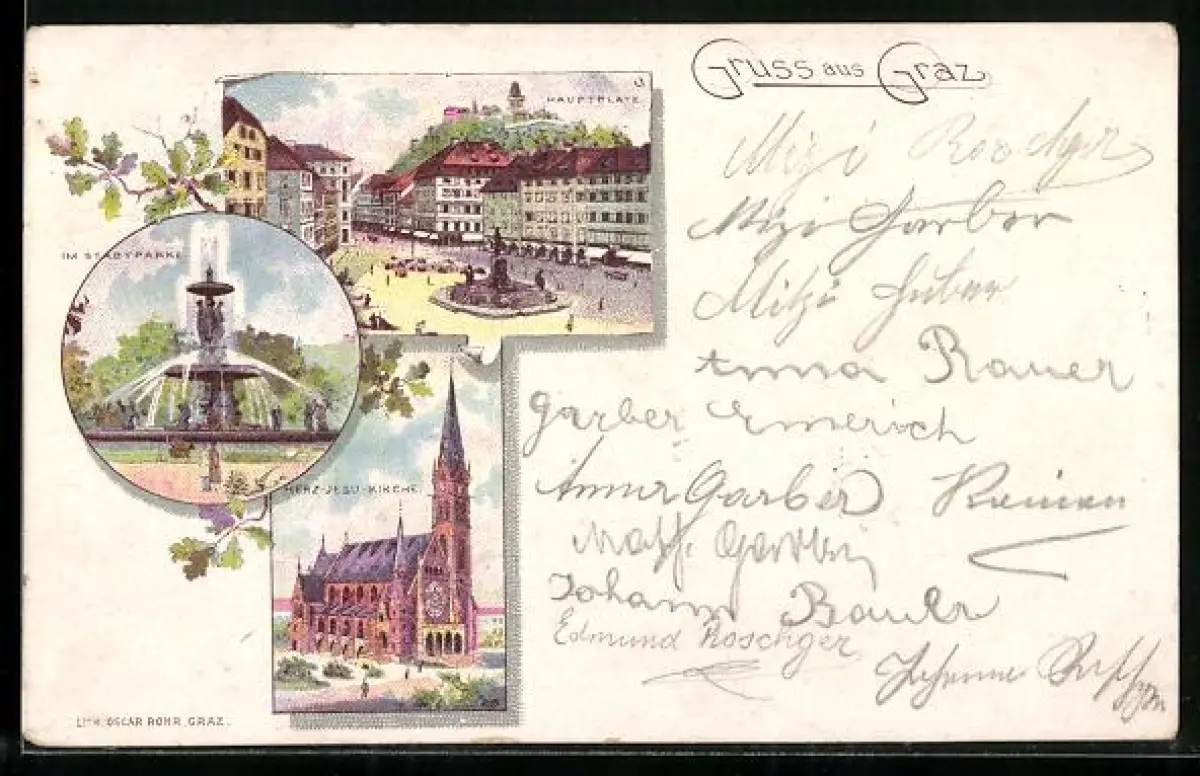 Gruss aus Graz
HAUPTPLATZ
IM STADTPARKE
HERZ-JESU-KIRCHE
LITH. OSCAR ROHR, GRAZ.
Mizi
Mizi Garber
Mitzi Huber
Anna Bauer
Garber Emerich
Anna Garber
Johann Bauer
Edmund Roschger
Johanna